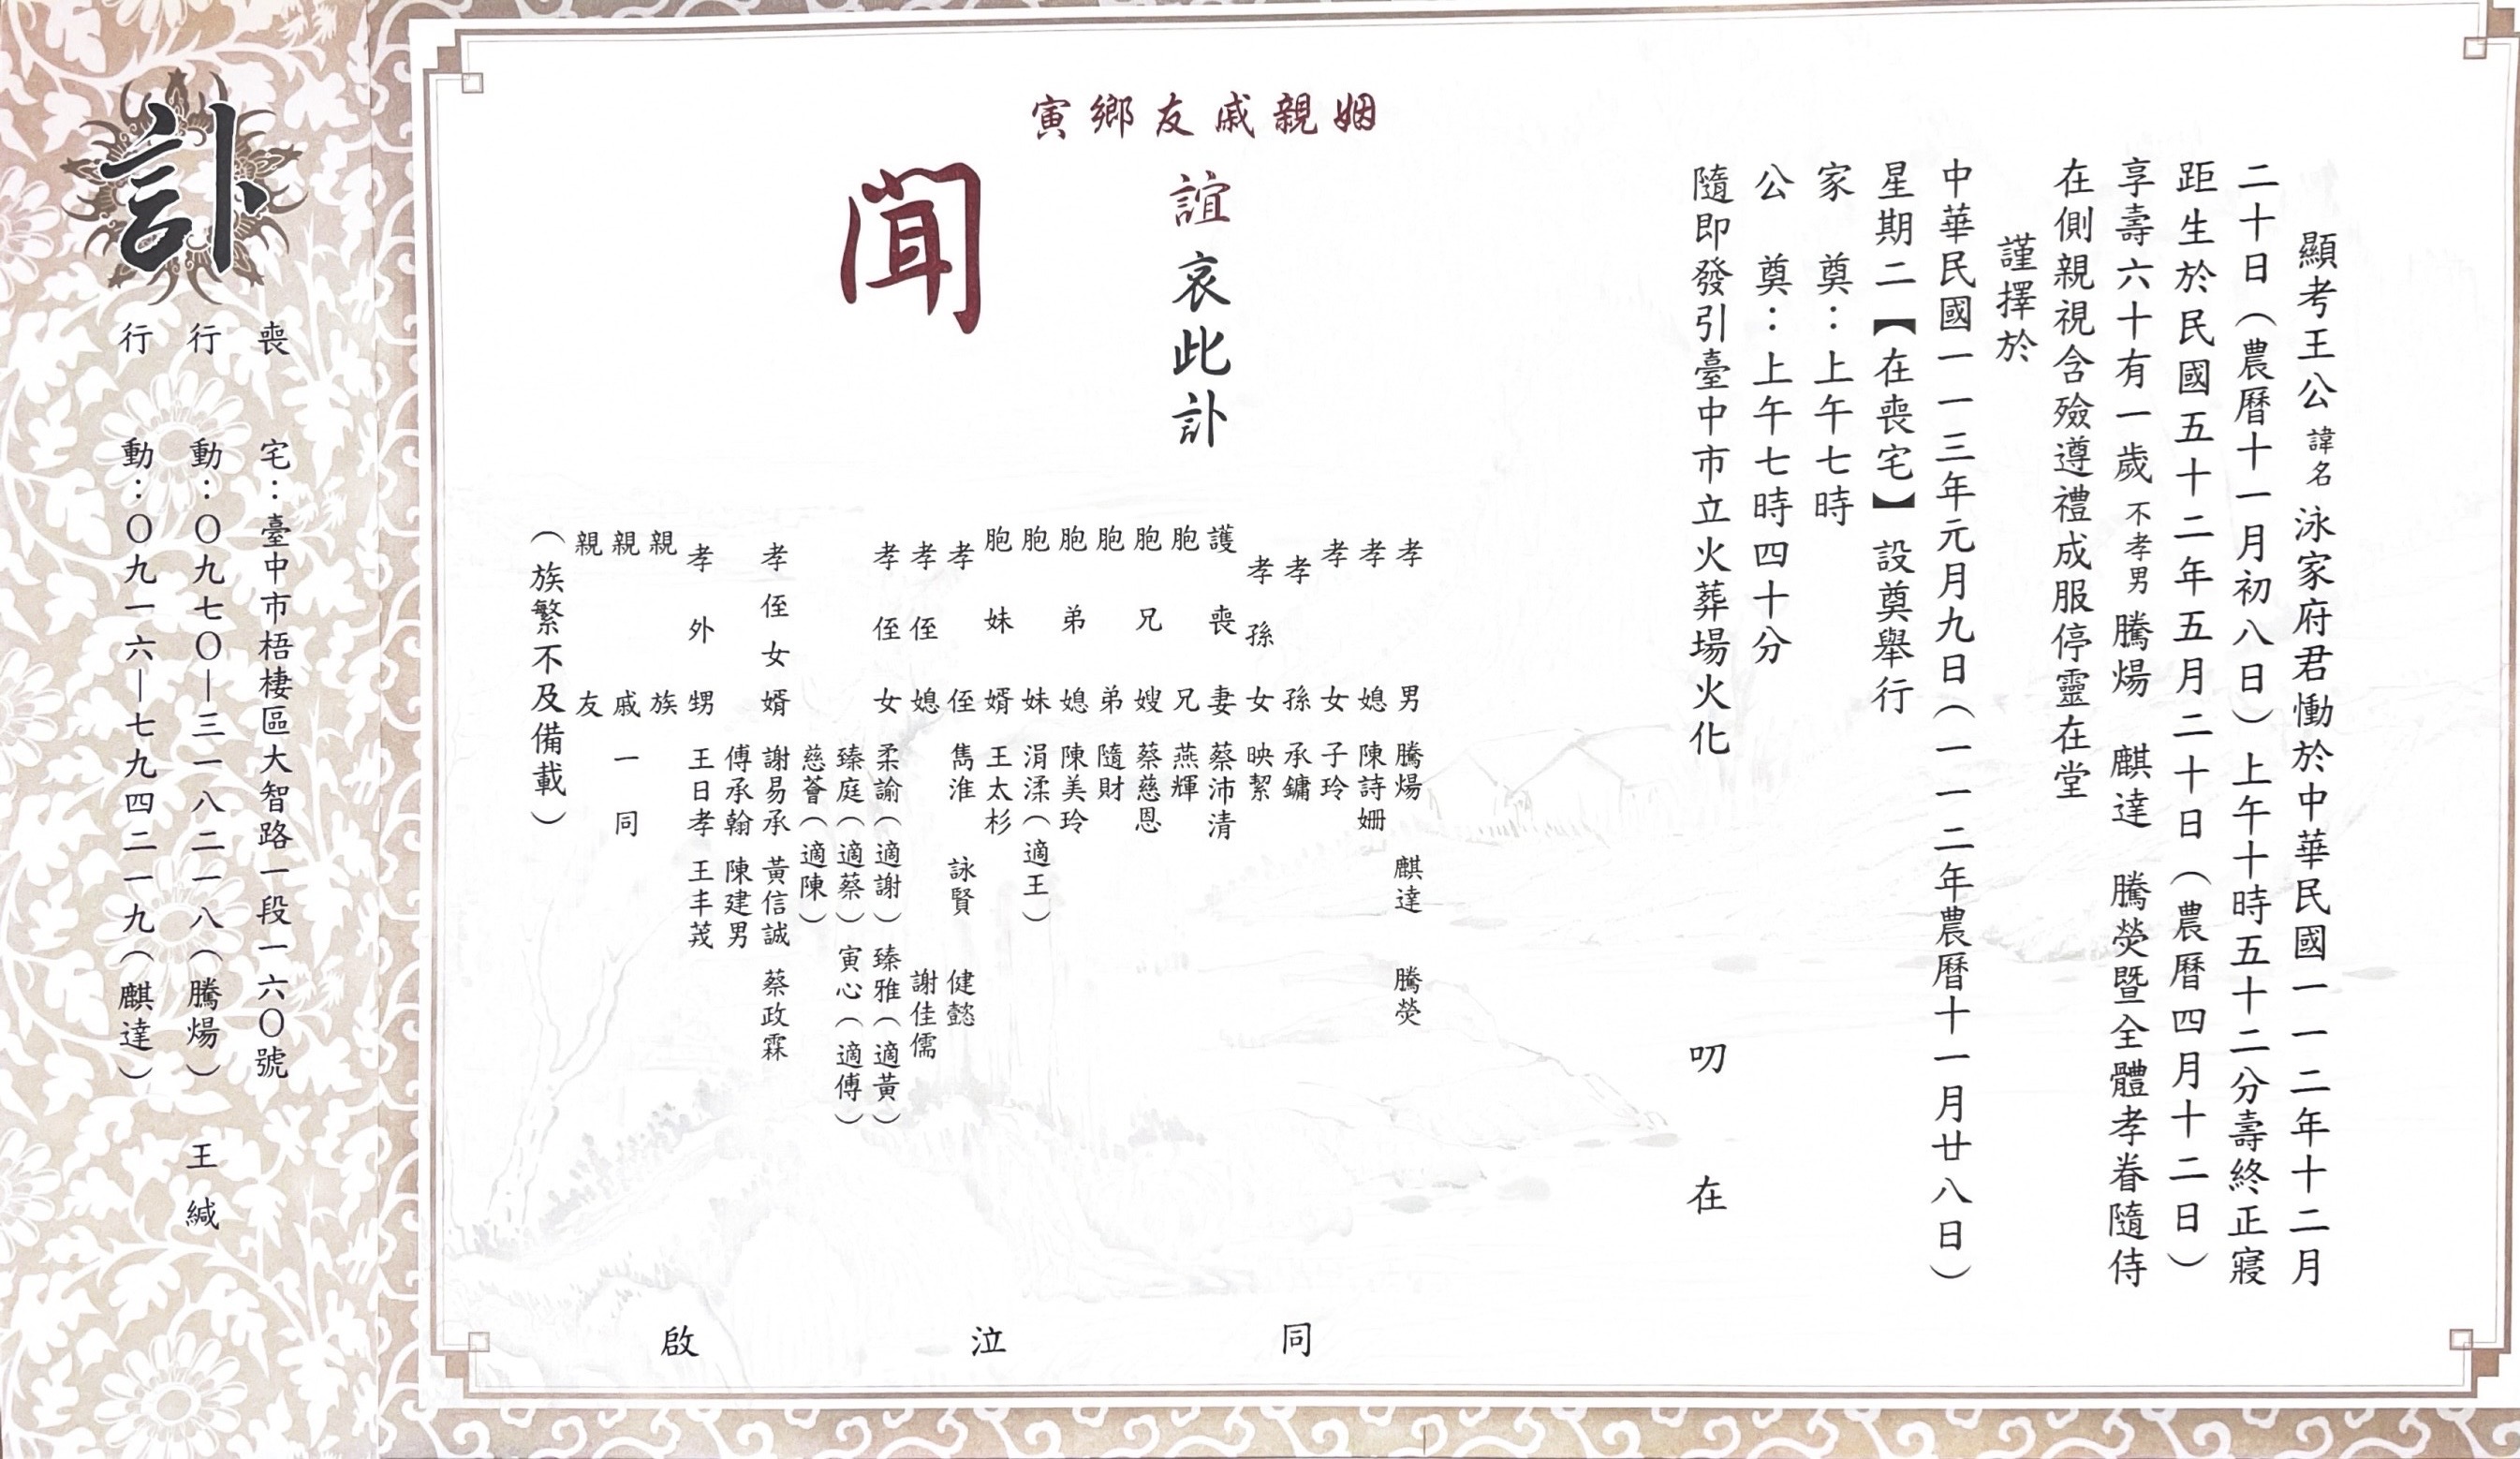 顯考王公諱名泳家府君慟於中華民國一一二年十二月
二十日（農曆十一月初八日）上午十時五十二分壽終正寢
距生於民國五十二年五月二十日（農曆四月十二日）
享壽六十有一歲不孝男騰煬 麒達 騰熒暨全體孝眷隨侍
在側親視含殮遵禮成服停靈在堂
謹擇於
中華民國一一三年元月九日（一一二年農曆十一月廿八日）
星期二【在喪宅】設奠舉行
家 奠：上午七時
公 奠：上午七時四十分
隨即發引臺中市立火葬場火化
叨 在
姻親戚友鄉寅
誼哀此訃
聞
孝男 騰煬 麒達 騰熒
孝媳 陳詩姍
孝女 子玲
孝孫 承鏞
孝孫女 映絜
護喪妻 蔡沛清
胞兄 燕輝
胞兄嫂 蔡慈恩
胞弟 隨財
胞弟媳 陳美玲
胞妹 涓渘（適王）
胞妹婿 王太杉
孝侄 雋淮 詠賢 健懿
孝侄媳 謝佳儒
孝侄女 柔諭（適謝） 臻雅（適黃）
臻庭（適蔡） 寅心（適傅）
慈薈（適陳）
孝侄女婿 謝易承 黃信誠 蔡政霖
傅承翰 陳建男
孝外甥 王日孝 王丰茙
親族
親戚 一同
親友
（族繁不及備載）
同 泣 啟
訃
喪 宅：臺中市梧棲區大智路一段一六〇號
行 動：〇九七〇—三一八二一八（騰煬） 王 緘
行 動：〇九一六—七九四二一九（麒達）